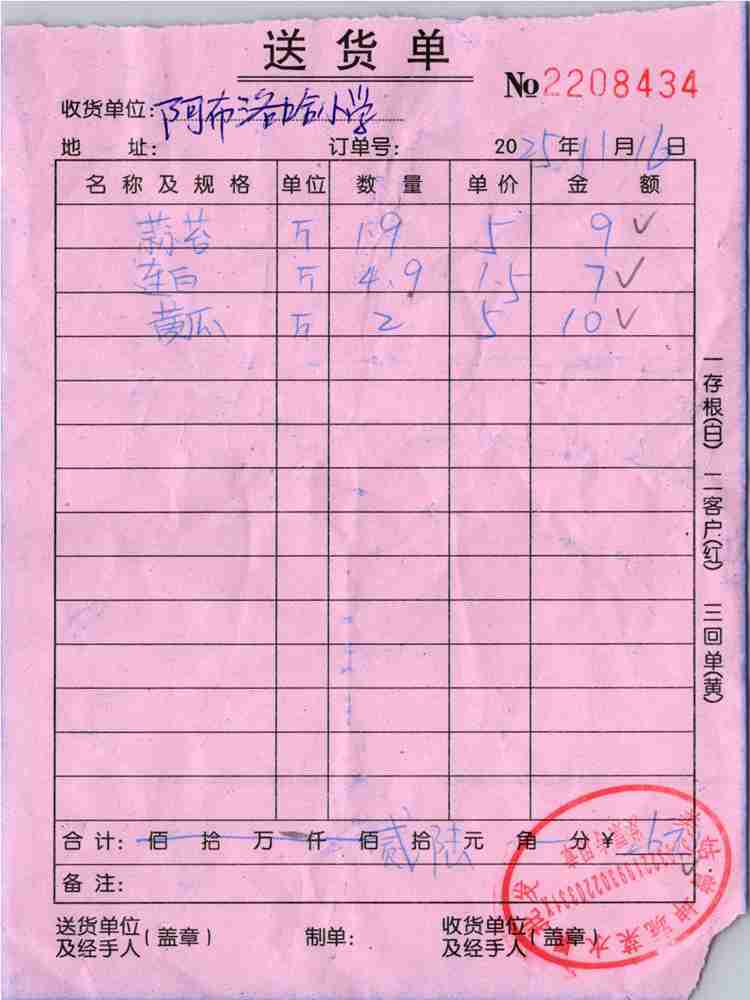 送货单
№2208434
收货单位:阿布洛哈小学
地 址: 订单号: 2025年11月16日
名称及规格 单位 数量 单价 金额
蒜苔 斤 1.9 5 9 ✓
莲白 斤 4.9 1.5 7 ✓
黄瓜 斤 2 5 10 ✓
合计: 佰 拾 万 仟 佰 贰拾 陆元 角 分 ¥26元
备注:
送货单位及经手人(盖章) 制单: 收货单位及经手人(盖章)
一存根(白) 二客户(红) 三回单(黄)